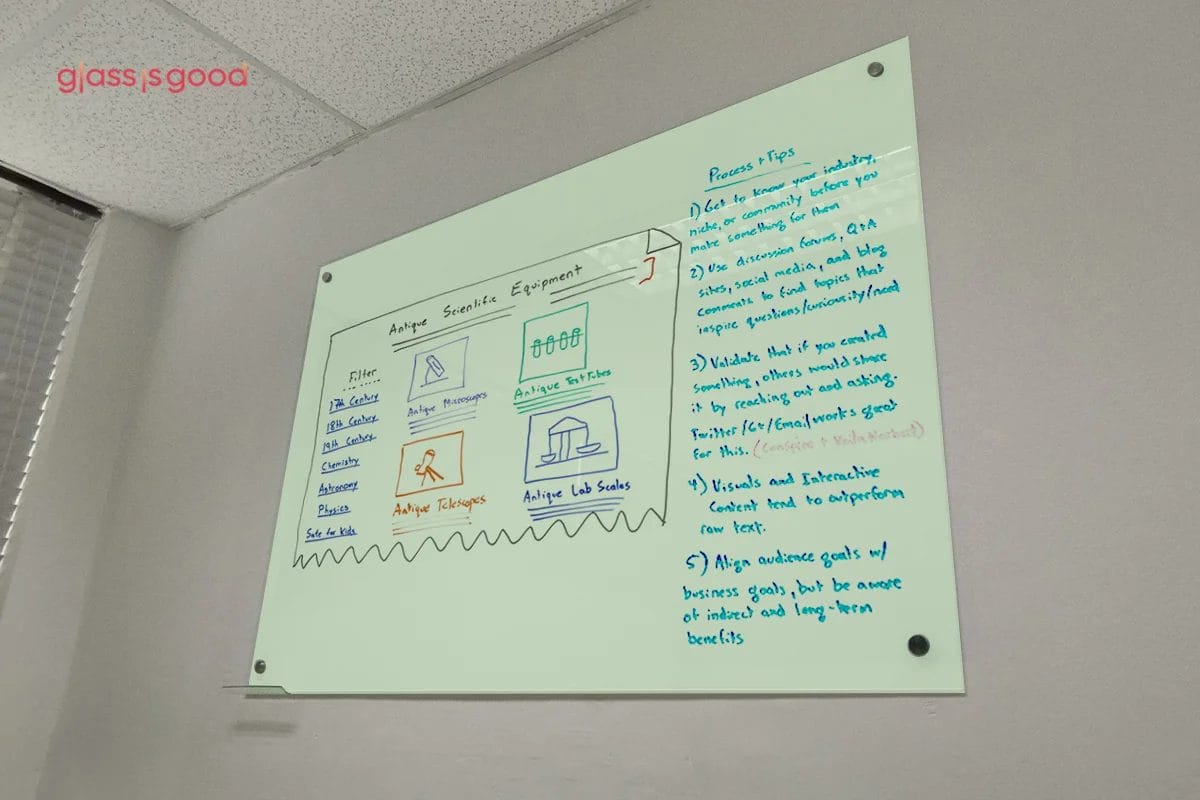 glassisgood
Antique Scientific Equipment
Filter
17th Century
18th Century
19th Century
Chemistry
Astronomy
Physics
Safe for Kids
Antique Microscopes
Antique Test Tubes
Antique Telescopes
Antique Lab Scales
Process + Tips
1) Get to know your industry,
niche, or community before you
make something for them
2) Use discussion forums, Q+A
sites, social media, and blog
comments to find topics that
inspire questions/curiousity/need
3) Validate that if you created
something, others would share
it by reaching out and asking.
Twitter/G+/Email works great
for this. (Conspire +
4) Visuals and Interactive
Content tend to outperform
raw text.
5) Align audience goals w/
business goals, but be aware
of indirect and long-term
benefits